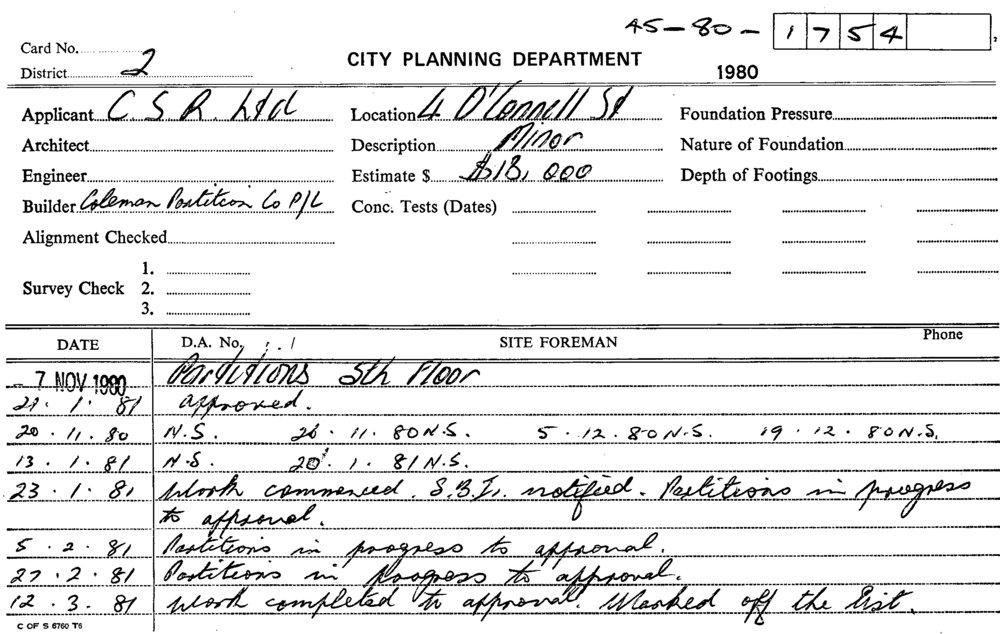 45-80- 1 7 5 4
Card No.
District 2
CITY PLANNING DEPARTMENT
1980
Applicant C S R. Ltd Location 4 O'Connell St Foundation Pressure
Architect Description Minor Nature of Foundation
Engineer Estimate $ $18,000 Depth of Footings
Builder Coleman Partition Co P/L Conc. Tests (Dates)
Alignment Checked
1.
Survey Check 2.
3.
DATE D.A. No. SITE FOREMAN Phone
- 7 NOV 1980 Partitions 5th Floor
21 . 1 . 81 approved.
20 . 11 . 80 N.S. 26 . 11 . 80 N.S. 5 . 12 . 80 N.S. 19 . 12 . 80 N.S.
13 . 1 . 81 N.S. 20 . 1 . 81 N.S.
23 . 1 . 81 Work commenced. S.B.I. notified. Partitions in progress
to approval.
5 . 2 . 81 Partitions in progress to approval.
27 . 2 . 81 Partitions in progress to approval.
12 . 3 . 81 Work completed to approval. Marked off the List.
C OF S 6760 T6